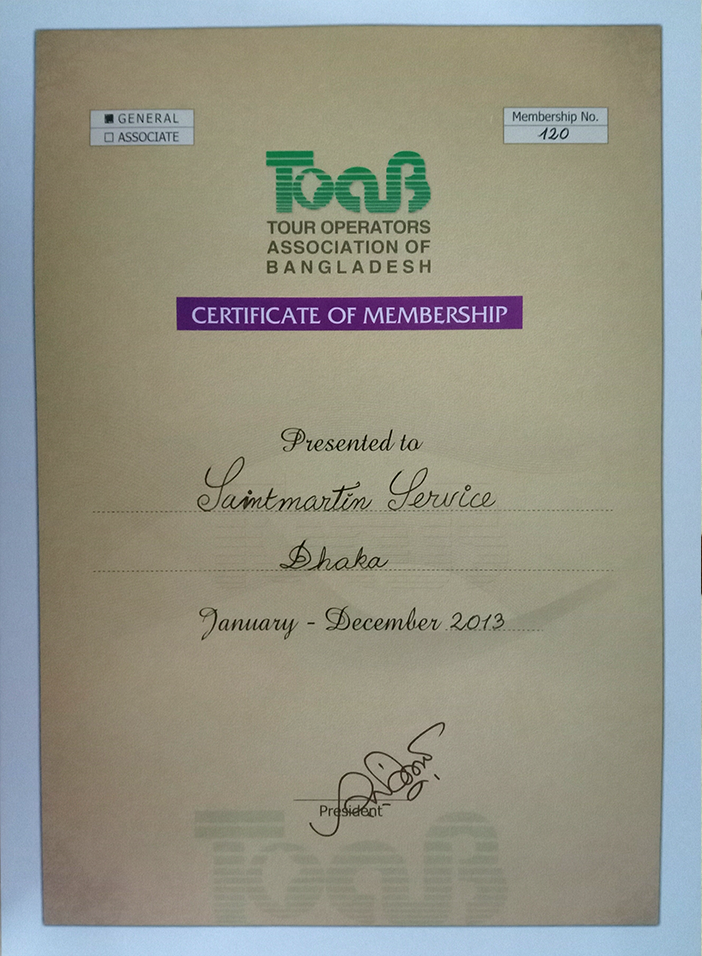 GENERAL
ASSOCIATE
Membership No.
120
ToaB
TOUR OPERATORS
ASSOCIATION OF
BANGLADESH
CERTIFICATE OF MEMBERSHIP
Presented to
Saintmartin Service
Dhaka
January - December 2013
President
ToaB